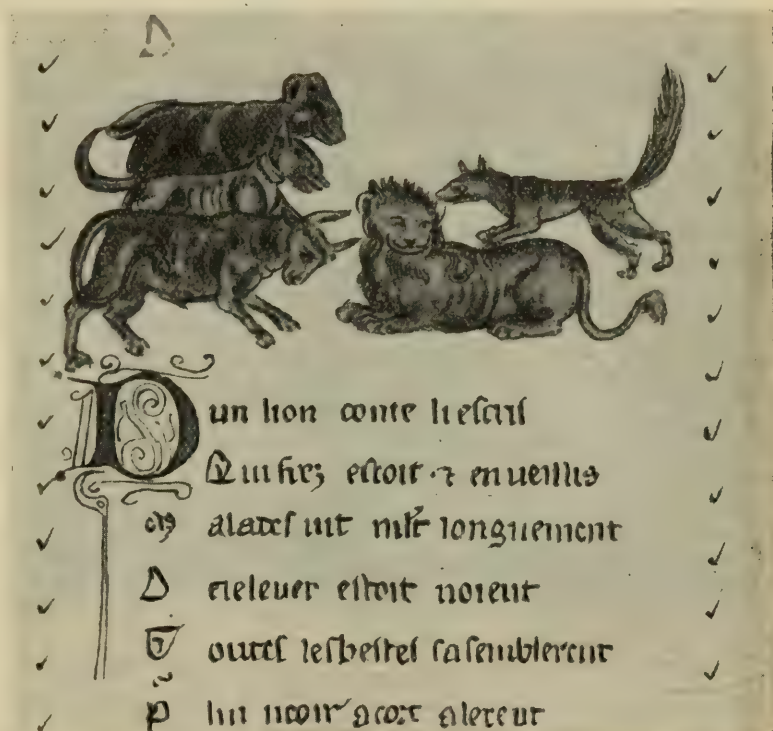 D
Dun lion conte liescris
Qui frez estoit ⁊ enueillis
M alades iut mlt longuement
D erleleuer estoit noient
T outes lesbestes sasemblerent
P lui ueoir acort alerent